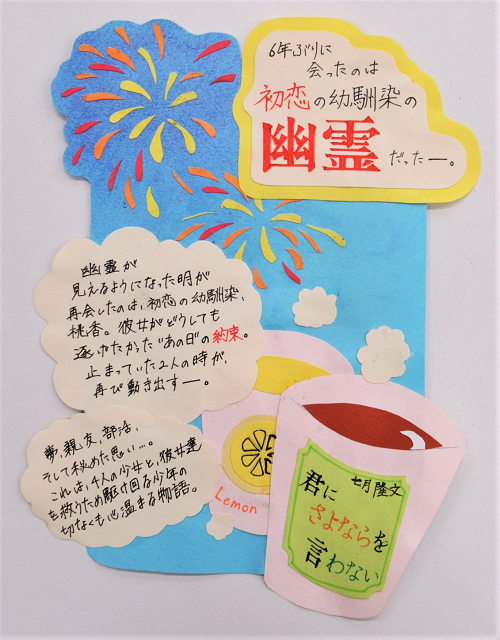 6年ぶりに
会ったのは
初恋の幼馴染の
幽霊だったー。
幽霊が
見えるようになった明が
再会したのは、初恋の幼馴染、
桃香。彼女がどうしても
遂げたかった“あの日”の約束。
止まっていた2人の時が、
再び動き出すー。
夢、親友、部活、
そして秘めた思い…。
これは、4人の少女と、彼女達
を救うため駆け回る少年の
切なくも心温まる物語。
Lemon
七月隆文
君に
さよならを
言わない